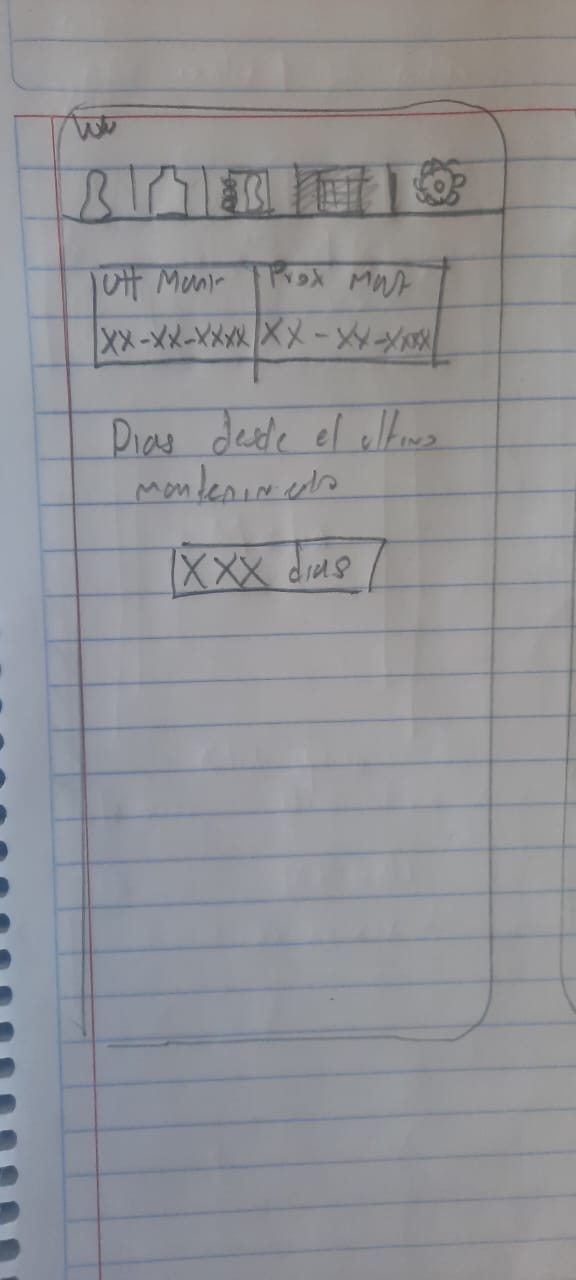 Ult Mant Prox Mant
XX-XX-XXXX XX-XX-XXXX
Dias desde el ultimo
mantenimiento
XXX dias